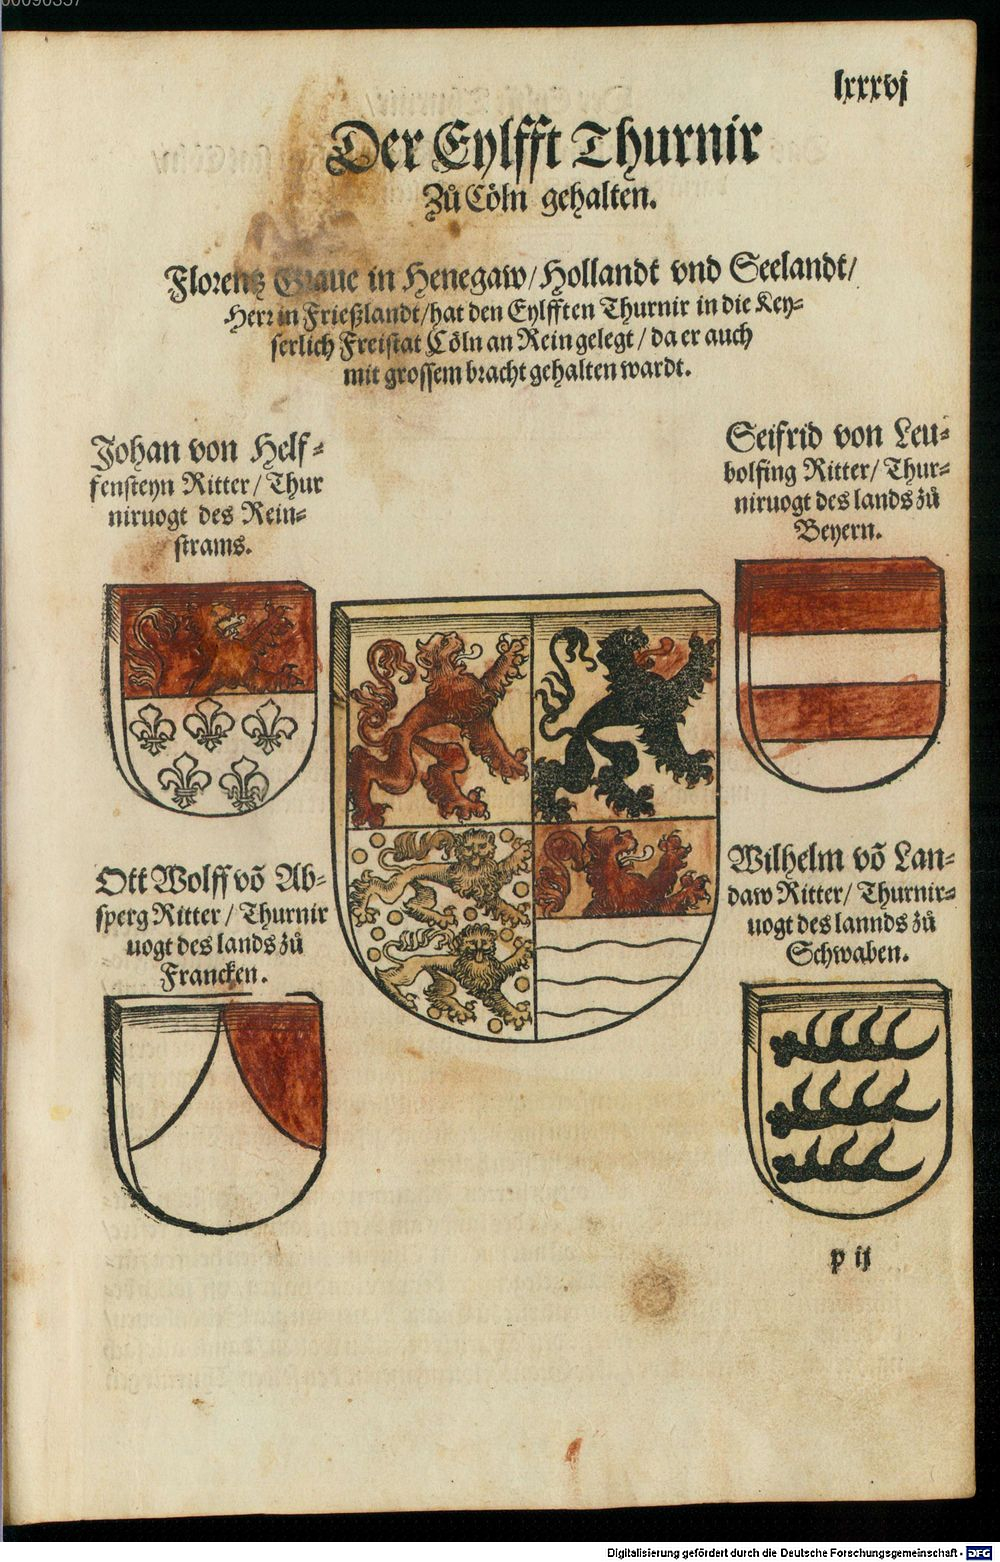 lxxxvj
Der Eylfft Thurnir
Zů Cöln gehalten.
Florentz Graue in Henegaw/Hollandt vnd Seelandt/
Herr in Frießlandt/hat den Eylfften Thurnir in die Key⸗
serlich Freistat Cöln an Rein gelegt/ da er auch
mit grossem bracht gehalten wardt.
Johan von Helf⸗
fensteyn Ritter/ Thur
niruogt des Rein⸗
strams.
Seifrid von Leu⸗
bolfing Ritter/ Thur⸗
niruogt des lands zů
Beyern.
Ott Wolff võ Ab⸗
sperg Ritter/ Thurnir
uogt des lands zů
Francken.
Wilhelm võ Lan⸗
daw Ritter/ Thurnir⸗
uogt des lannds zů
Schwaben.
p ij
Digitalisierung gefördert durch die Deutsche Forschungsgemeinschaft - DFG